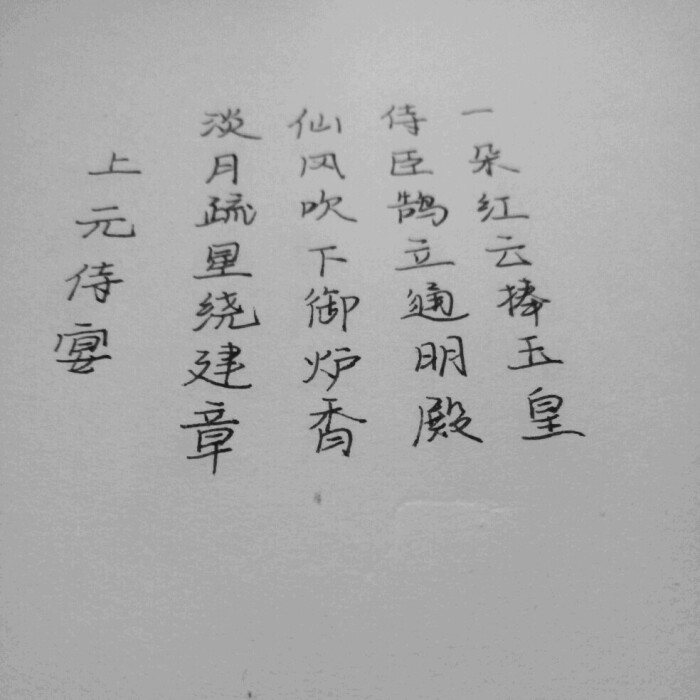 上元侍宴
淡月疏星绕建章
仙风吹下御炉香
侍臣鹄立通明殿
一朵红云捧玉皇